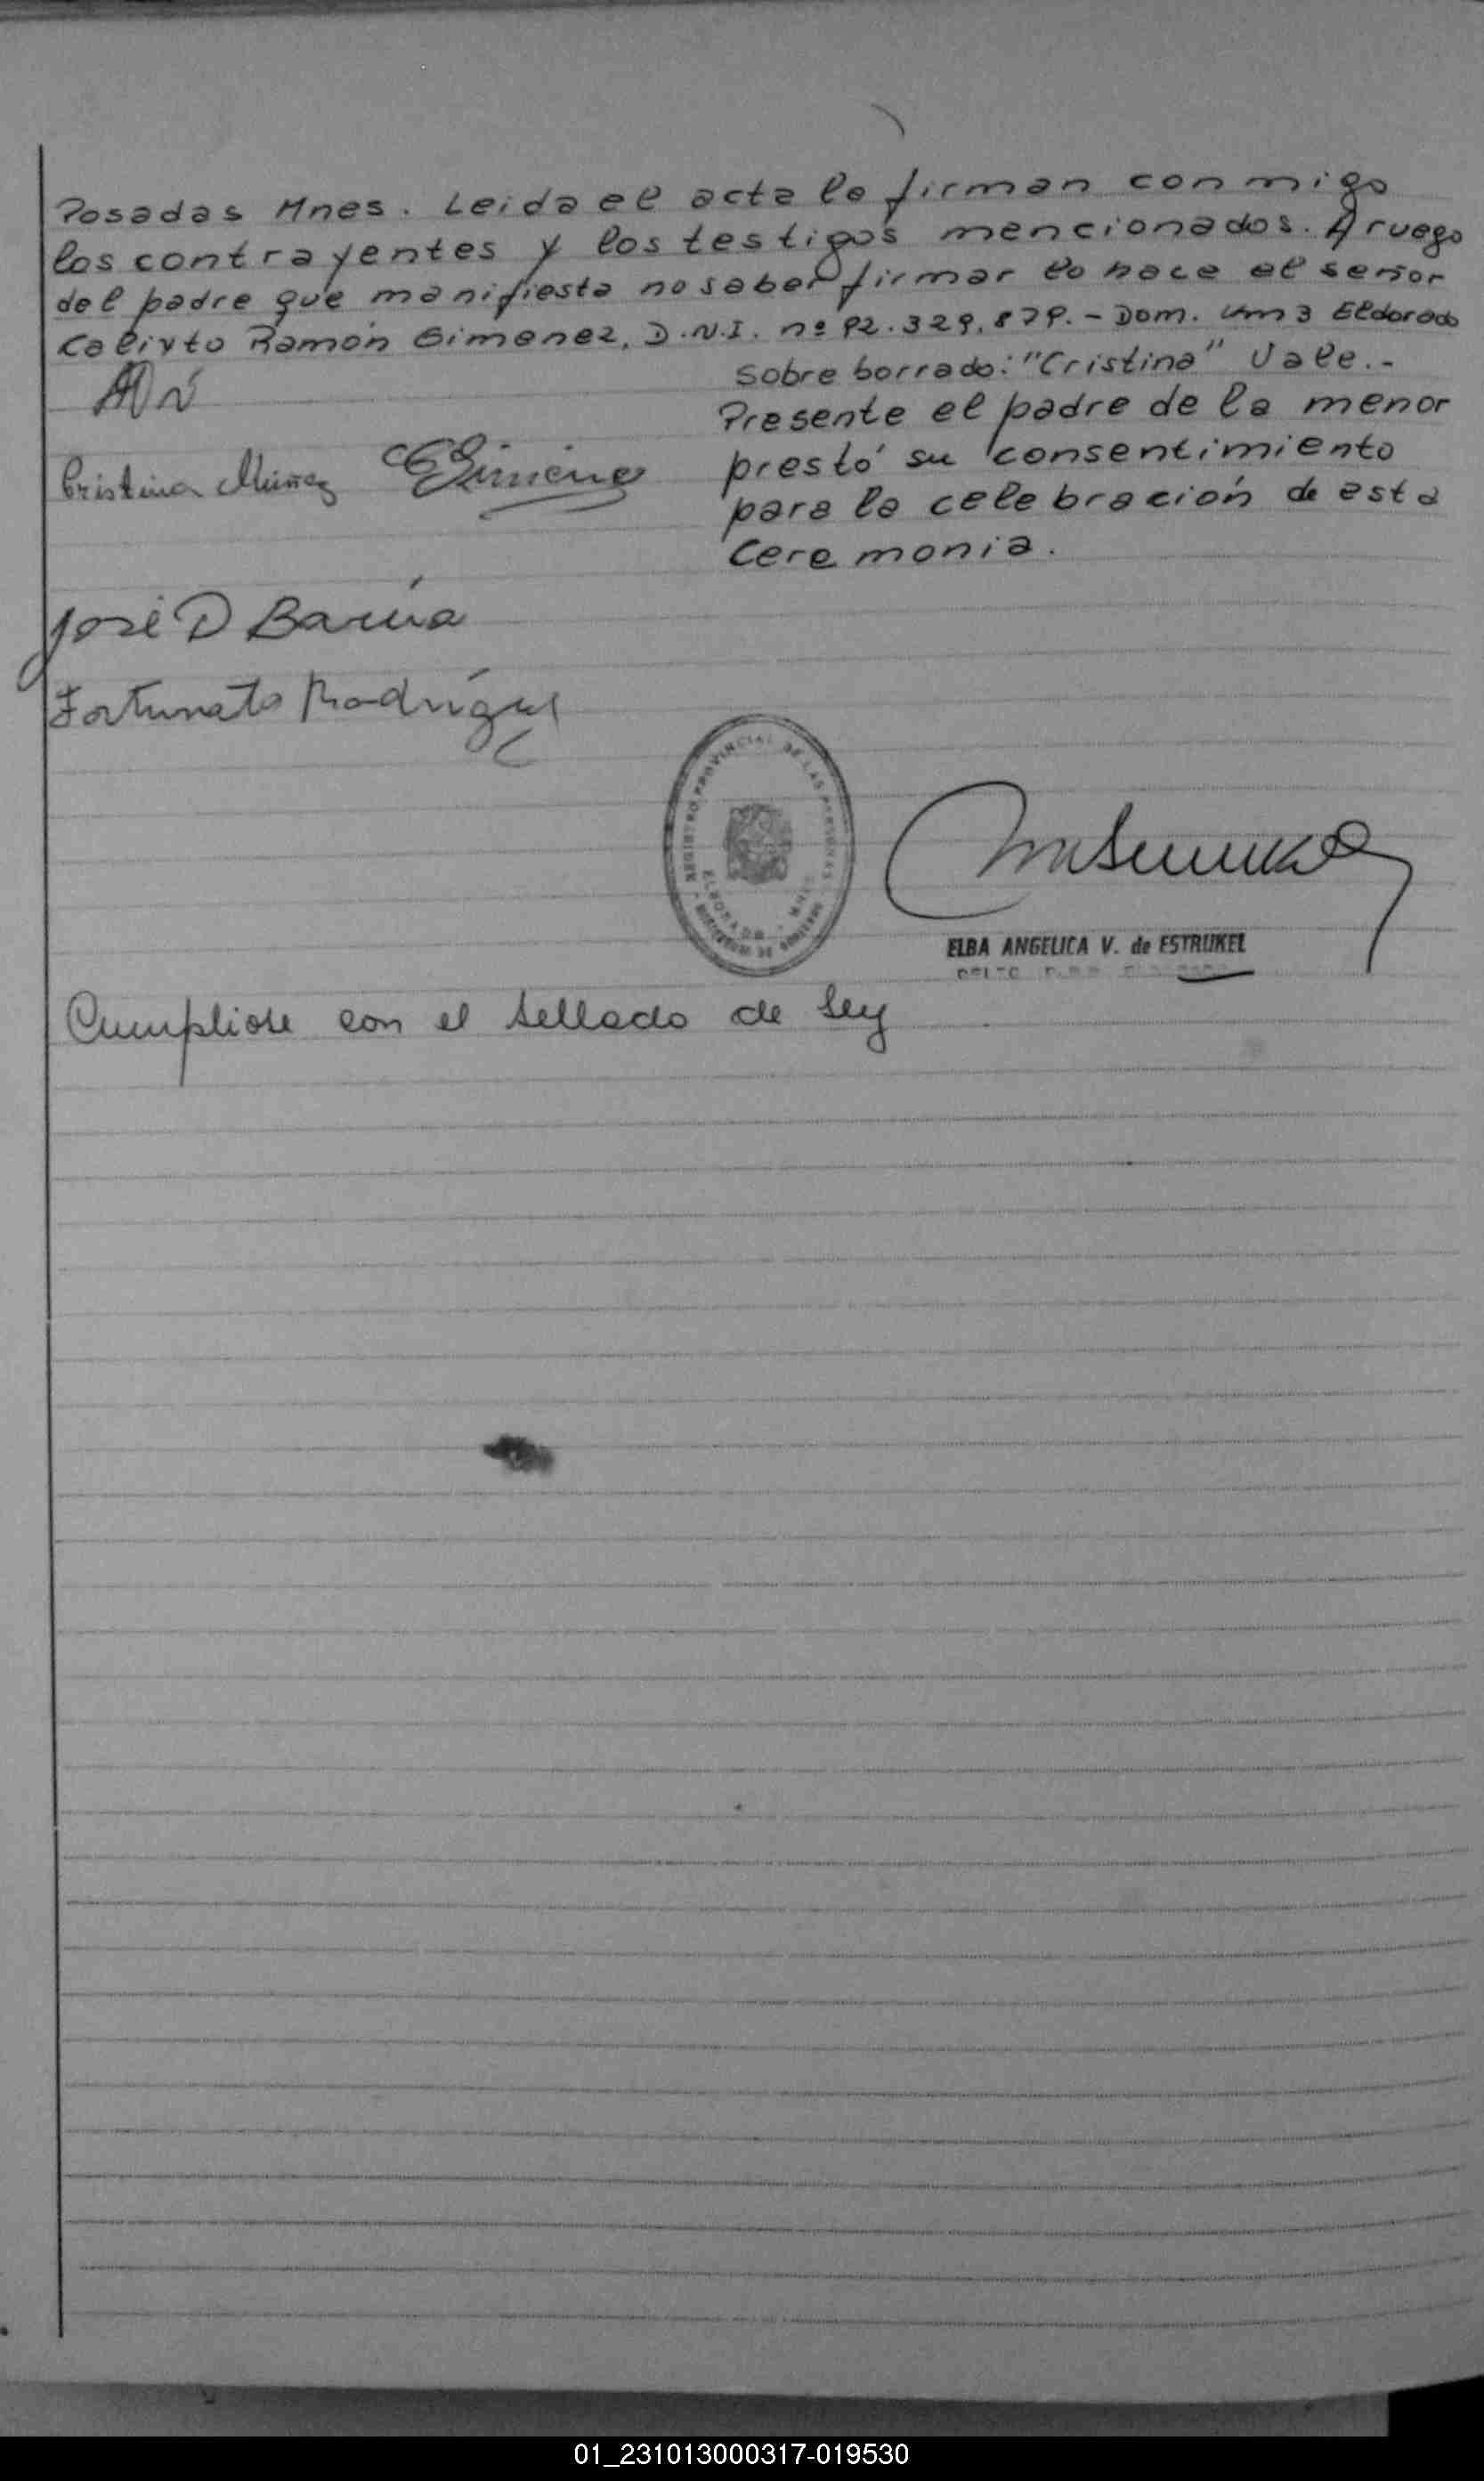 Posadas Mnes. Leida el acta lo firman conmigo
los contrayentes y los testigos mencionados. A ruego
del padre que manifiesta no saber firmar lo hace el señor
Calixto Ramón Gimenez, D.N.I. nº 92.329.879.- Dom. km 3 Eldorado
Sobre borrado: "Cristina" Vale.-
Presente el padre de la menor
prestó su consentimiento
para la celebración de esta
Ceremonia.
Cristina Muñoz CGimenez
José D Barúa
Fortunato Rodríguez
REGISTRO PROVINCIAL DE LAS PERSONAS
ELDORADO - MNES
ELBA ANGELICA V. de ESTRUKEL
Cumpliose con el sellado de ley
01_231013000317-019530